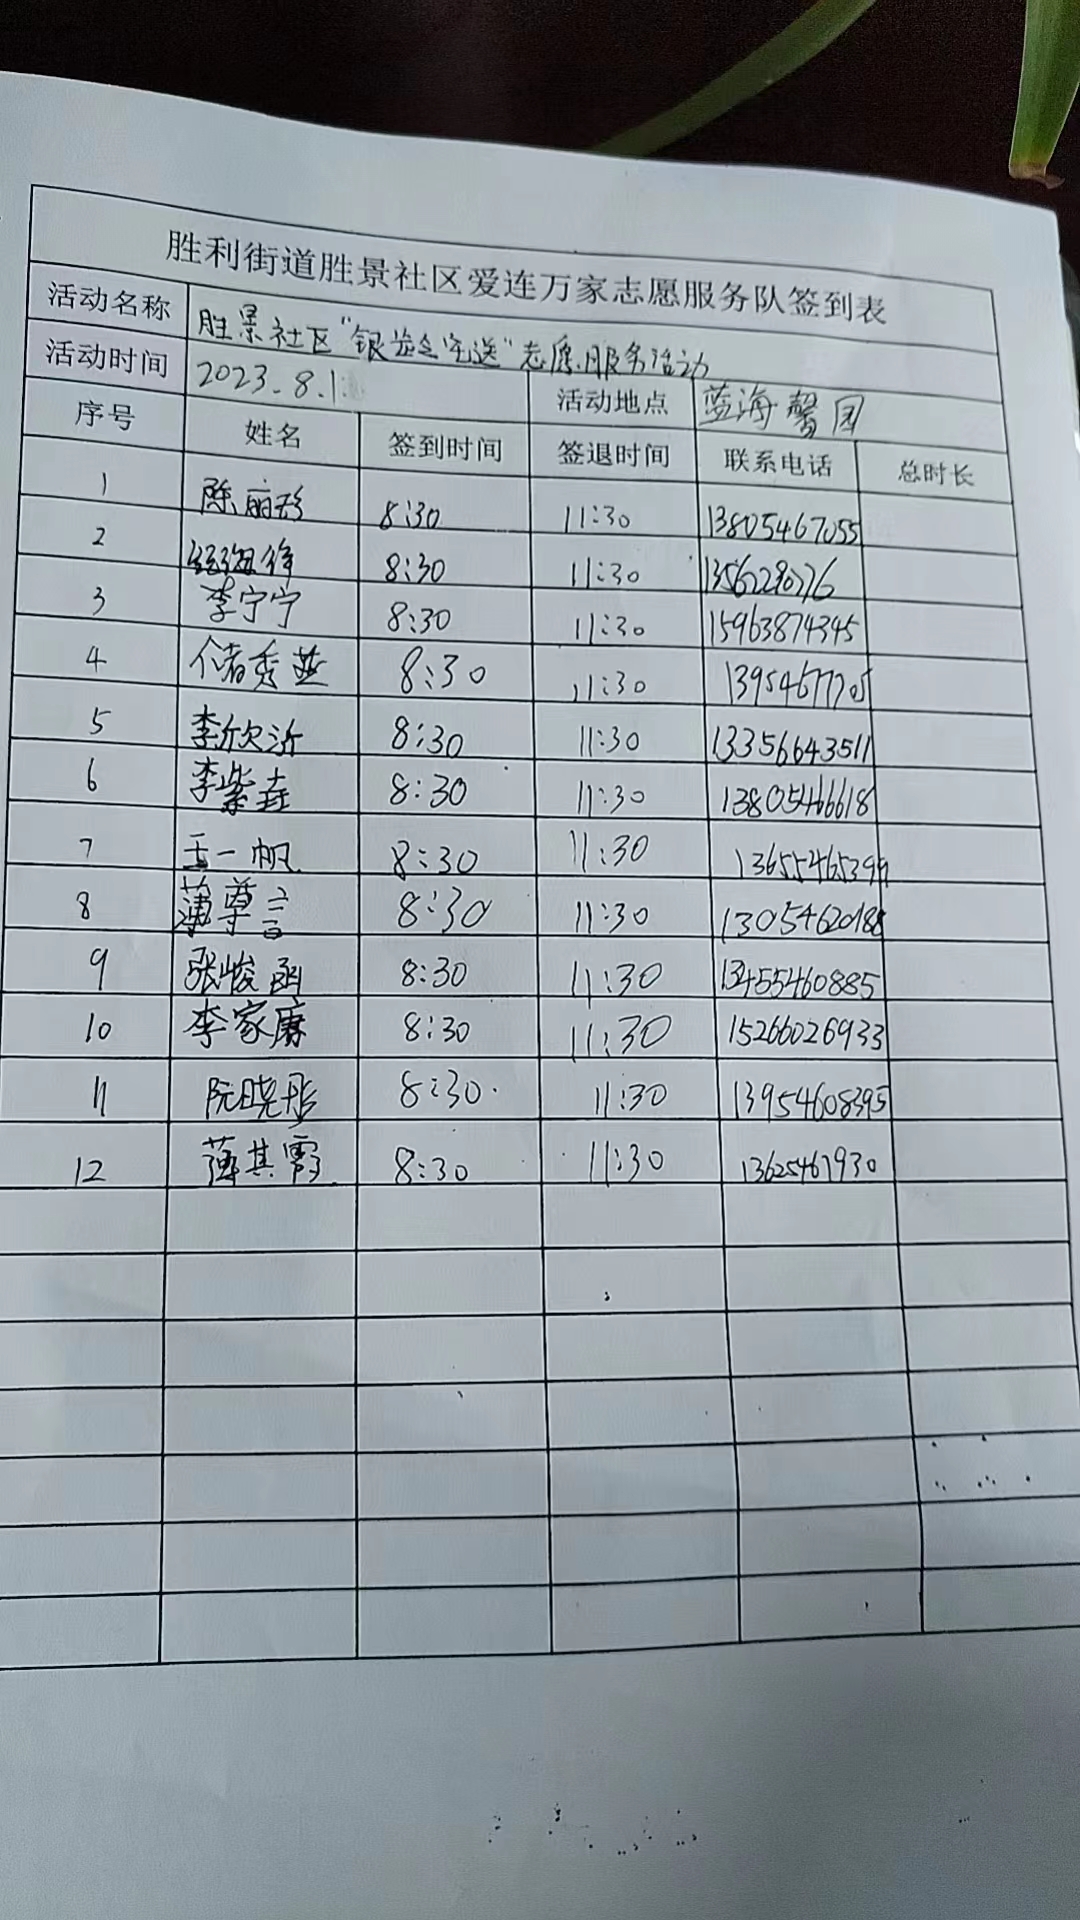 胜利街道胜景社区爱连万家志愿服务队签到表
活动名称 胜景社区“银龄安送”志愿服务活动
活动时间 2023.8.1 活动地点 蓝海馨园
序号 姓名 签到时间 签退时间 联系电话 总时长
1 陈丽珍 8:30 11:30 13805467055
2 8:30 11:30
3 李宁宁 8:30 11:30 15963874345
4 储秀燕 8:30 11:30
5 李欣沂 8:30 11:30 13356643511
6 李紫垚 8:30 11:30 13805466618
7 王一帆 8:30 11:30 13655465399
8 薄尊言 8:30 11:30
9 张峻函 8:30 11:30 13455460885
10 李家康 8:30 11:30 15266026933
11 阮晓彤 8:30 11:30 13954608395
12 薄其霞 8:30 11:30 13625461930